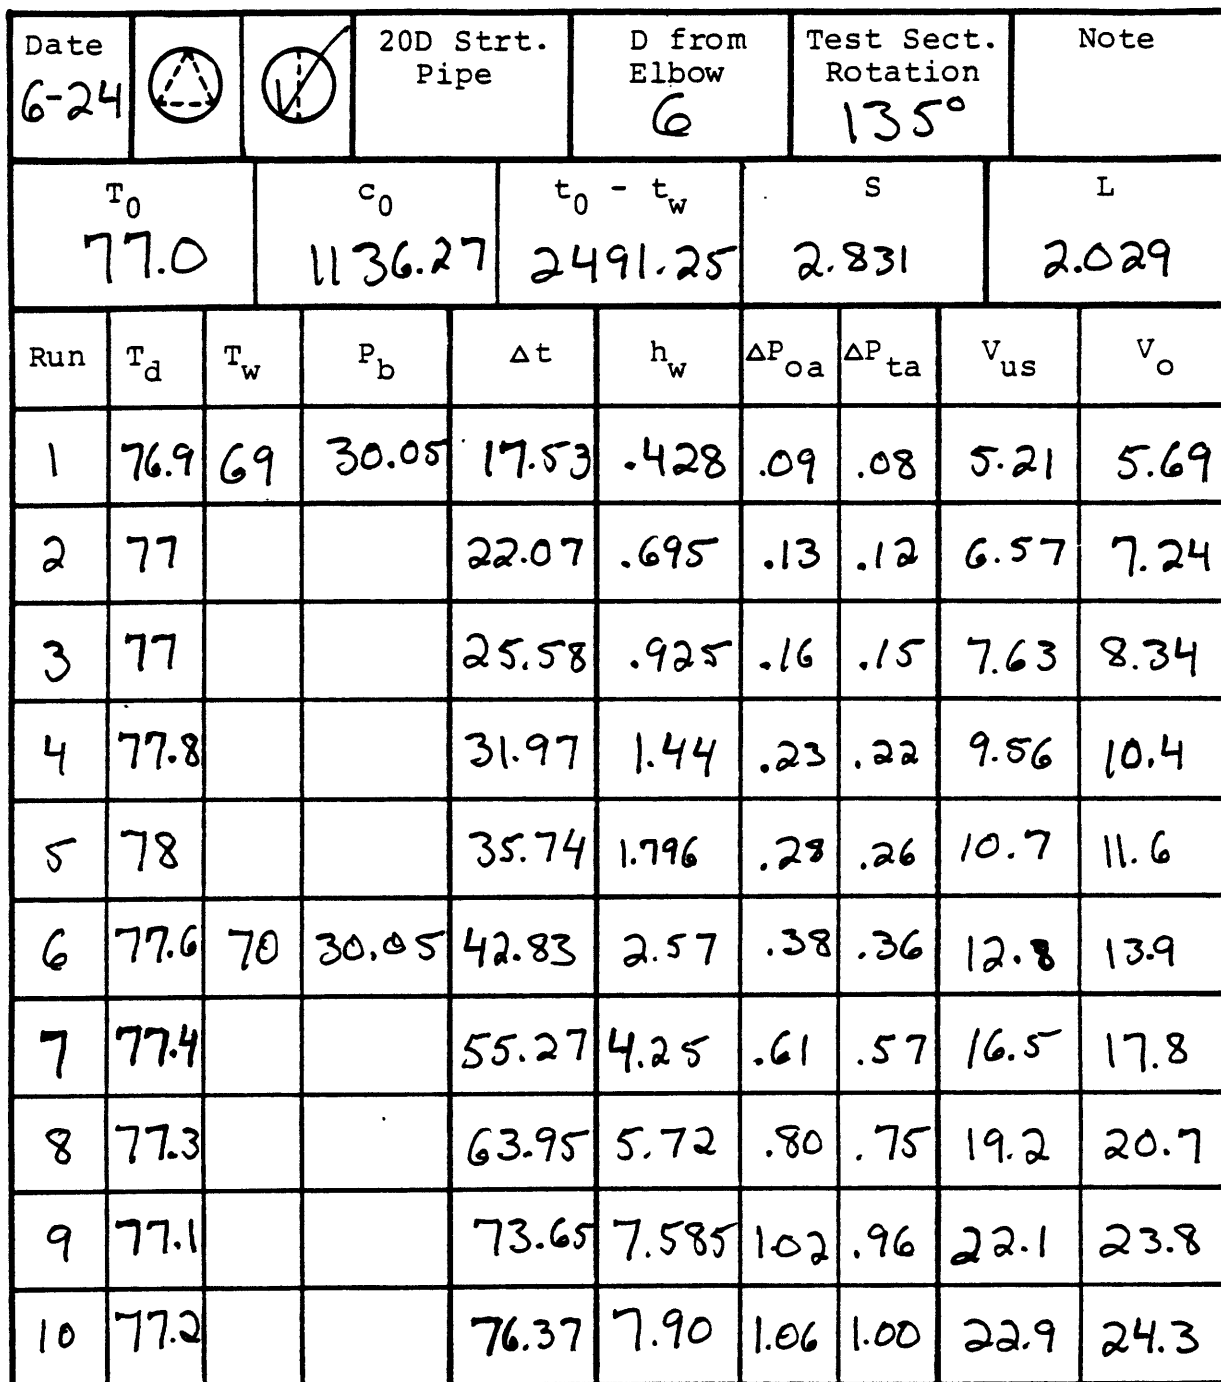 Date 20D Strt. D from Test Sect. Note
Pipe Elbow Rotation
6-24 6 135°
T0 c0 t0 - tw S L
77.0 1136.27 2491.25 2.831 2.029
Run Td Tw Pb Δt hw ΔPoa ΔPta Vus Vo
1 76.9 69 30.05 17.53 .428 .09 .08 5.21 5.69
2 77 22.07 .695 .13 .12 6.57 7.24
3 77 25.58 .925 .16 .15 7.63 8.34
4 77.8 31.97 1.44 .23 .22 9.56 10.4
5 78 35.74 1.796 .28 .26 10.7 11.6
6 77.6 70 30.05 42.83 2.57 .38 .36 12.8 13.9
7 77.4 55.27 4.25 .61 .57 16.5 17.8
8 77.3 63.95 5.72 .80 .75 19.2 20.7
9 77.1 73.65 7.585 1.02 .96 22.1 23.8
10 77.2 76.37 7.90 1.06 1.00 22.9 24.3